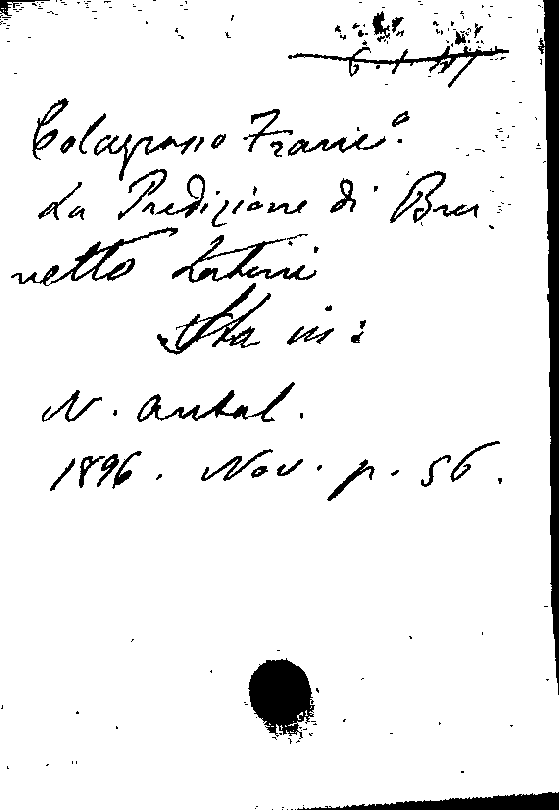 Colagrosso Franc.º
La Predizione di Bru
netto Latini
Sta in:
N. Antol.
1896. Nov. p. 56.